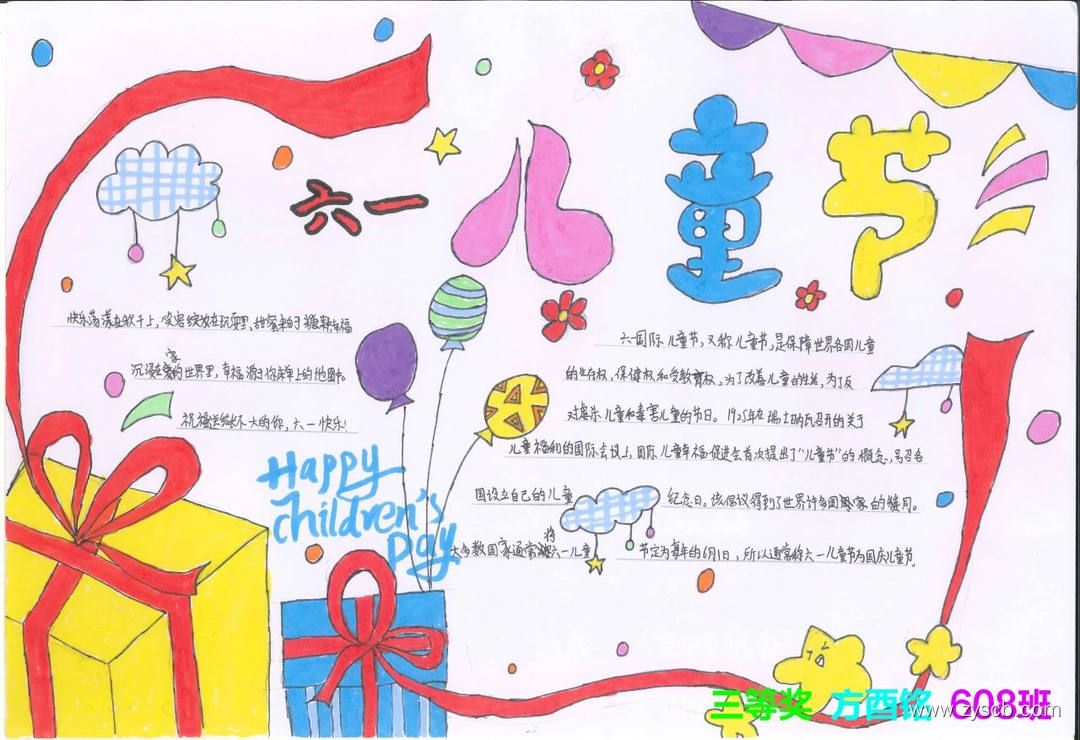 六一
儿童节
快乐荡漾在秋千上,笑容绽放在玩耍里,甜蜜来自于糖果,幸福
沉浸在家的世界里,幸福源于你床单上的地图。
祝福送给长不大的你,六一快乐!
Happy
children's
Day
六一国际儿童节,又称儿童节,是保障世界各国儿童
的生存权,保健权和受教育权,为了改善儿童的生活,为了反
对虐杀儿童和毒害儿童的节日。1925年在瑞士日内瓦召开的关于
儿童福利的国际会议上,国际儿童幸福促进会首次提出了“儿童节”的概念,号召各
国设立自己的儿童 纪念日。该倡议得到了世界许多国家的赞同。
大多数国家通常将六一儿童 节定为每年的6月1日,所以通常称六一儿童节为国庆儿童节。
三等奖 方酉铭 608班
www.zyscb.com